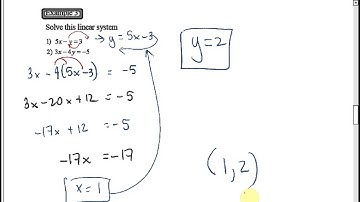 Example 3
Solve this linear system
1) 5x - y = 3 → y = 5x - 3
2) 3x - 4y = -5
y = 2
3x - 4(5x - 3) = -5
3x - 20x + 12 = -5
-17x + 12 = -5
-17x = -17
x = 1
(1, 2)